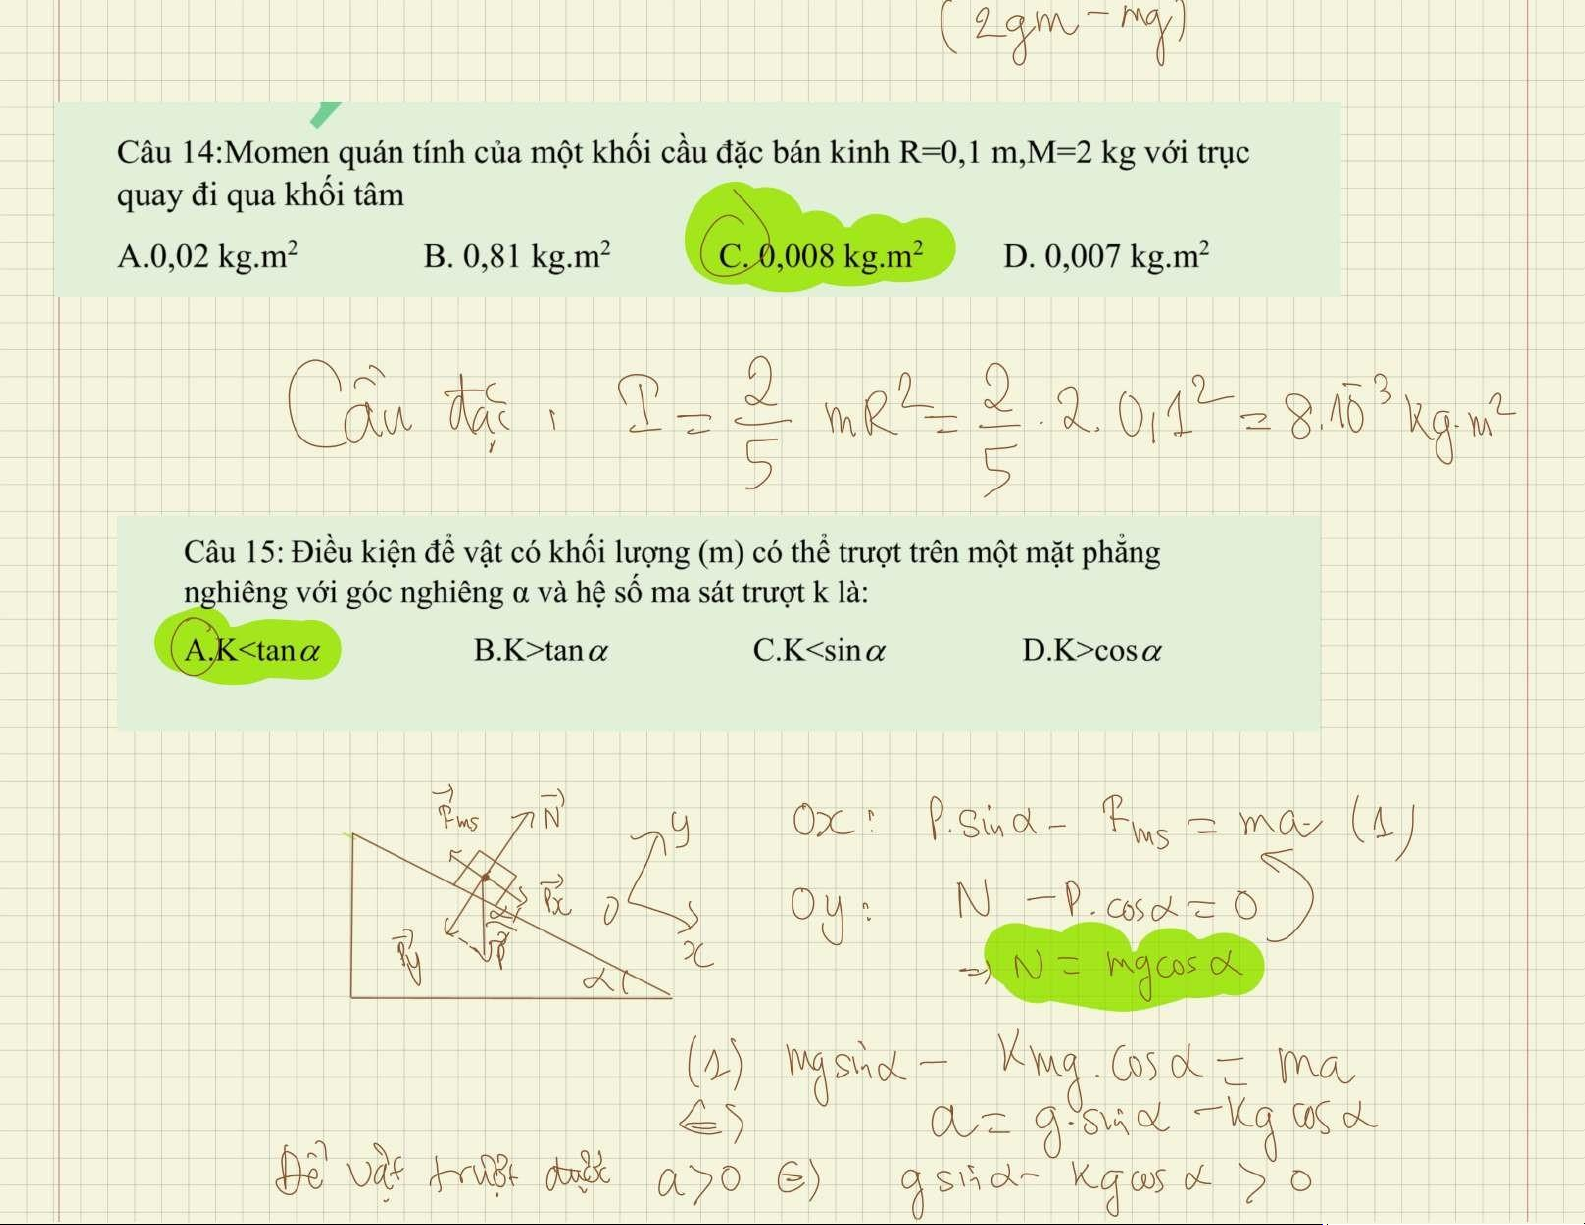 (2gm - mg)
Câu 14:Momen quán tính của một khối cầu đặc bán kinh R=0,1 m,M=2 kg với trục
quay đi qua khối tâm
A.0,02 kg.m² B. 0,81 kg.m² C. 0,008 kg.m² D. 0,007 kg.m²
Cầu đặc : I = 2/5 mR² = 2/5 . 2. 0,1² = 8.10⁻³ kg.m²
Câu 15: Điều kiện để vật có khối lượng (m) có thể trượt trên một mặt phẳng
nghiêng với góc nghiêng α và hệ số ma sát trượt k là:
A.K<tanα B.K>tanα C.K<sinα D.K>cosα
F⃗ms N⃗ y Ox: P.sinα - Fms = ma (1)
P⃗x O α P⃗ x P⃗y α Oy: N - P.cosα = 0
=> N = mgcosα
(1) mgsinα - Kmg.cosα = ma
<=> a = g.sinα - Kg cosα
Để vật trượt được a>0 <=> gsinα - Kgcosα > 0